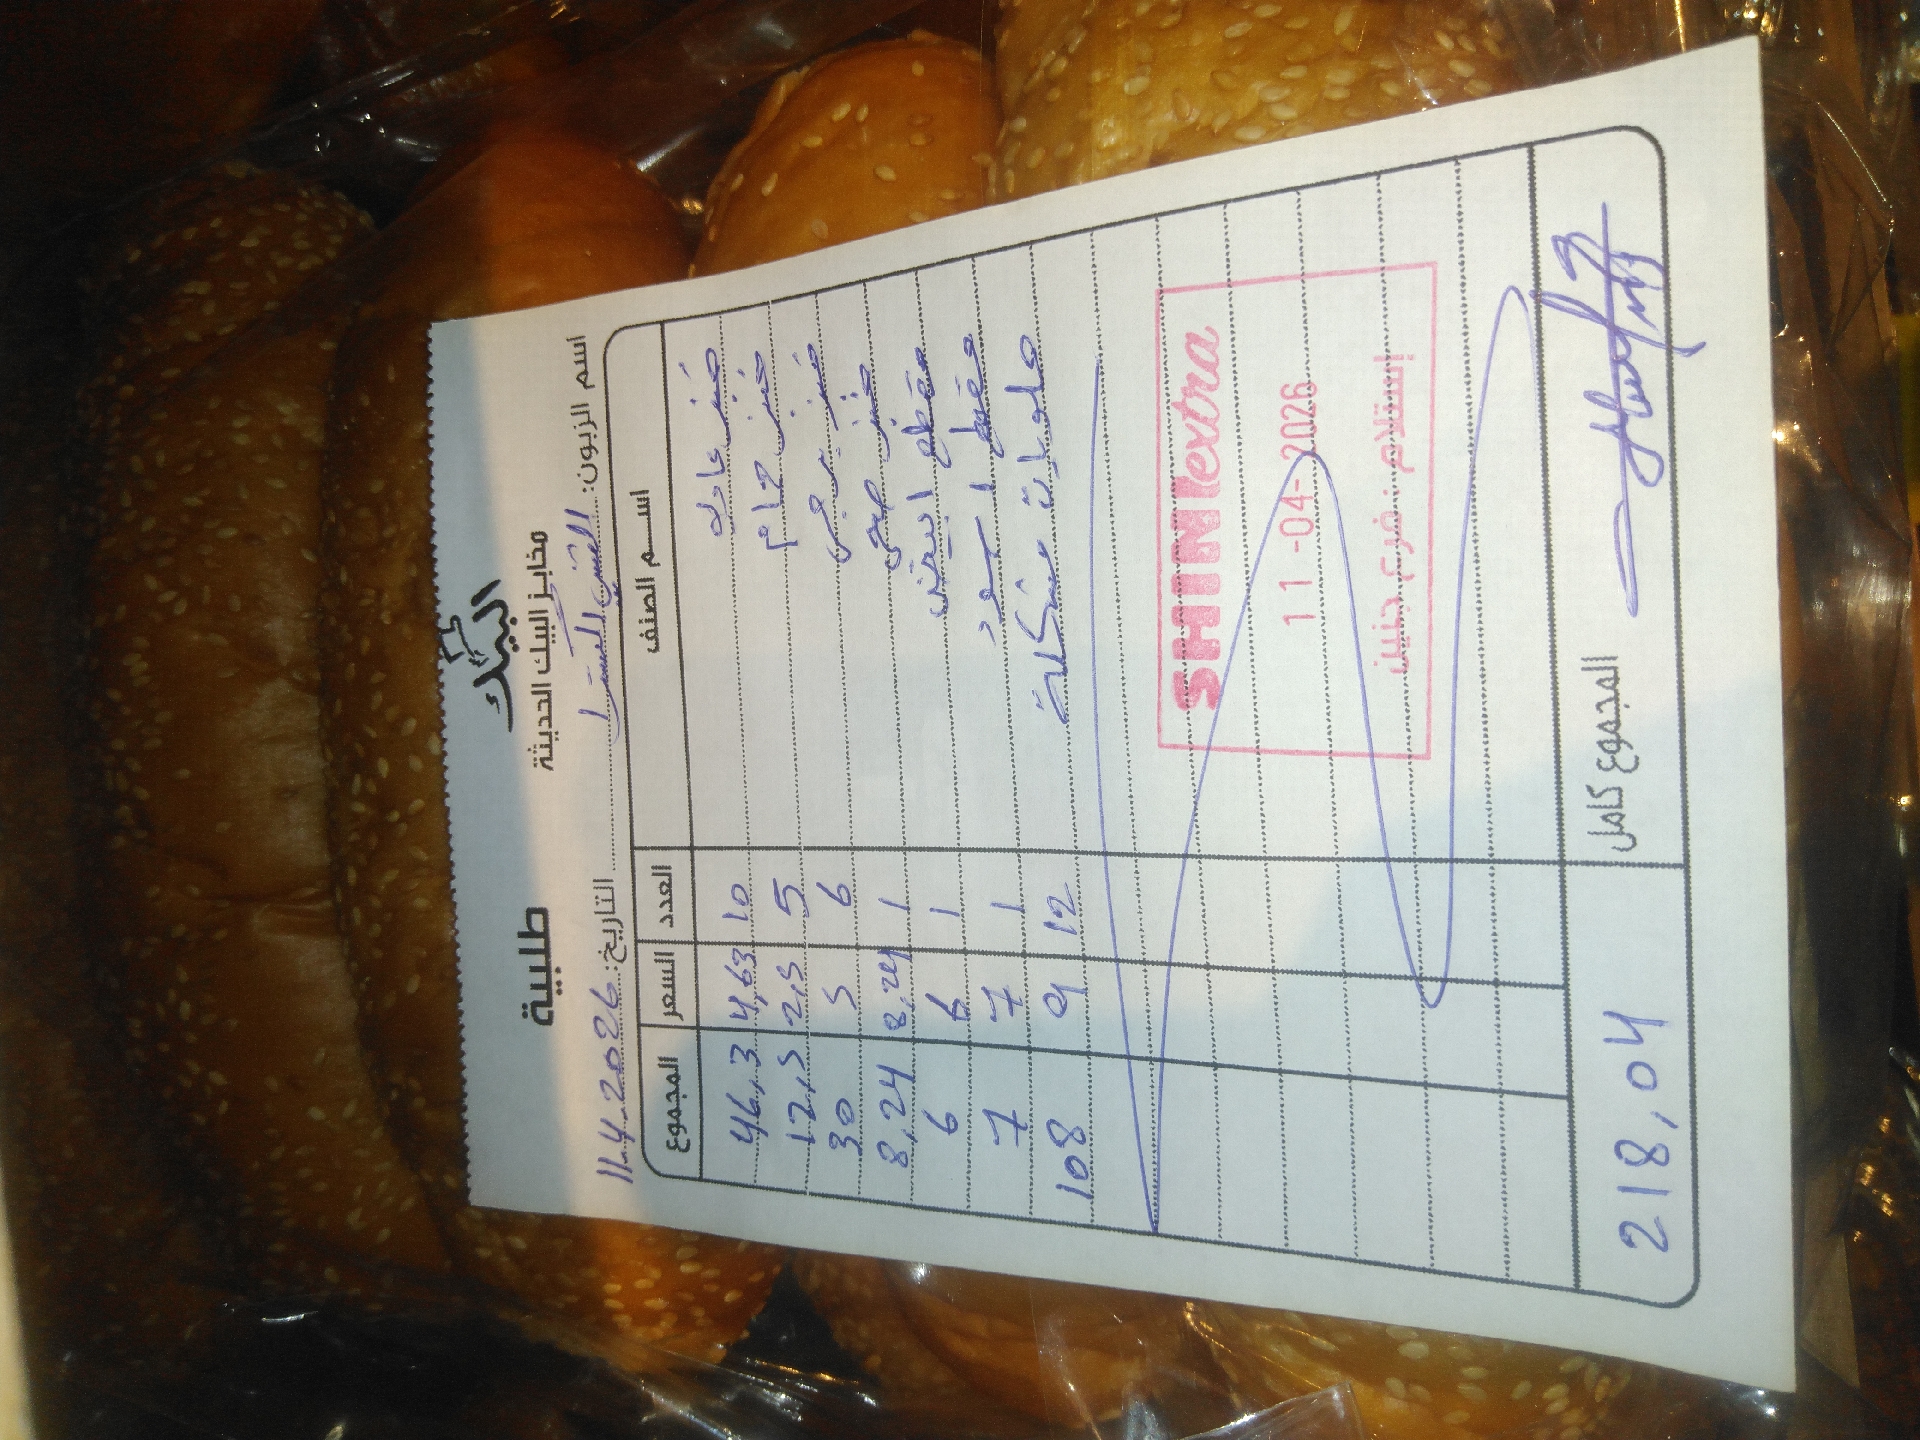 البيك
مخابز البيك الحديثة
طلبية
اسم الزبون: الشني اكسترا التاريخ: 11.4.2026
اسم الصنف العدد السعر المجموع
خبز عادي 10 4,63 46,3
خبز حمام 5 2,5 12,5
خبز بيجي 6 5 30
خبز صحي 1 8,24 8,24
مقطع ابيض 1 6 6
مقطع اسود 1 7 7
حلويات مشكلة 12 9 108
SHINIextra
11-04-2026
إستلام - فرع جنين
المجموع كامل 218,04